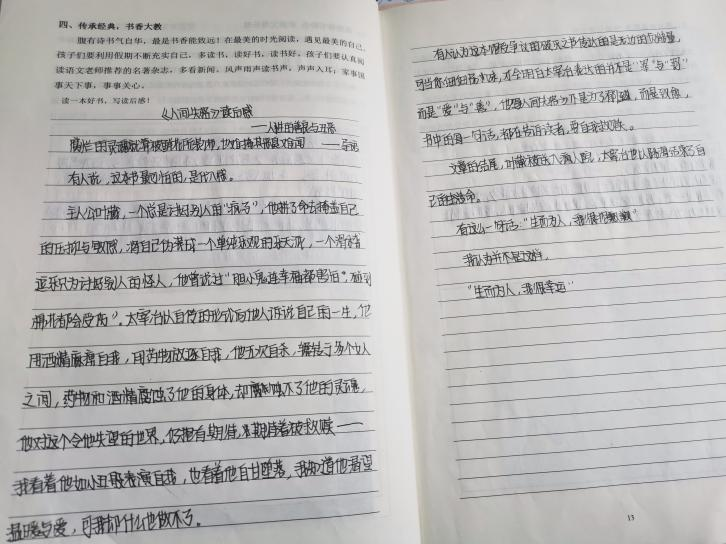 四、传承经典，书香大教
腹有诗书气自华，最是书香能致远！在最美的时光阅读，遇见最美的自己。
孩子们要利用假期不断充实自己，多读书、读好书、读书好。孩子们要认真阅
读语文老师推荐的名著杂志，多看新闻。风声雨声读书声，声声入耳；家事国
事天下事，事事关心。
读一本好书，写读后感！
《人间失格》读后感
——人性的善良与丑恶
有人说，这本书最可怕的，是代入感。
主人公叶藏，一个总是讨好别人的“疯子”，他拼了命去掩盖自己
的压抑与敏感，将自己伪装成一个单纯乐观的乐天派，一个滑稽
逗乐只为讨好别人的怪人，他曾说过“胆小鬼连幸福都害怕，碰到
棉花都会受伤”。太宰治以自传的形式向他人诉说自己的一生，他
用酒精麻痹自我，用药物放逐自我，他五次自杀，辗转于多个女人
之间，药物和酒精腐蚀了他的身体，却腐蚀不了他的灵魂，
他对这个令他失望的世界，仍抱有期待，期待着被救赎——
我看着他如小丑般表演自我，也看着他自甘堕落，我知道他渴望
温暖与爱，可我却什么也做不了。
有人认为这本很有争议的破灭之书传达的是无边的负能量，
可当你细细品味，才会明白太宰治表达的并不是“罪”与“罚”
而是“爱”与“善”，他写人间失格亦是为了释然，而是救赎，
书中的每一句话，都在告诉读者，要自我救赎。
文章的结尾，叶藏被送入疯人院，太宰治也以跳河结束了自
己的生命。
有这么一句话：“生而为人，我很抱歉”
我认为并不是这样，
“生而为人，我很幸运”
13